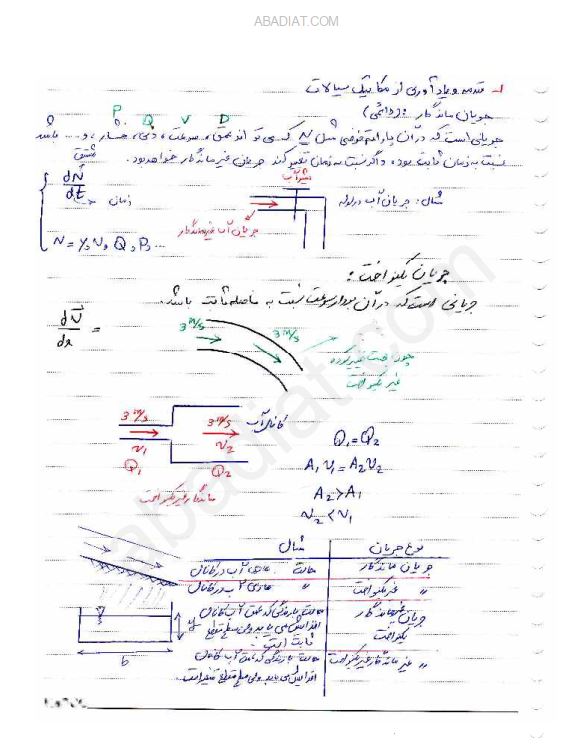 ABADIAT.COM
۱- مقدمه و یادآوری از مکانیک سیالات
جریان ماندگار (دائمی):
P Q V D
جریانی است که در آن پارامتر فرضی مثل N که می‌تواند عمق، سرعت، دبی، فشار، و... باشد
نسبت به زمان ثابت بوده و اگر نسبت به زمان تغییر کند جریان غیر ماندگار خواهد بود.
مشتق
dN/dt
زمان
شیر آب
مثال: جریان آب در لوله
جریان آب غیرماندگار
N = y, V, Q, P, ...
جریان یکنواخت:
جریانی است که در آن بردار سرعت نسبت به فاصله ثابت باشد.
dV/dx =
3 m/s 3 m/s
چون جهت تغییر کرده
غیر یکنواخت
3 m/s 3 m/s
کانال آب
V1 V2
Q1 Q2
ماندگار غیر یکنواخت
Q1 = Q2
A1 V1 = A2 V2
A2 > A1
V2 < V1
نوع جریان مثال
جریان ماندگار حالت عادی آب در کانال
" غیر یکنواخت " عادی آب در کانال
جریان غیرماندگار یکنواخت
حالت بارندگی که عمق آب کانال
افزایش می یابد ولی سطح مقطع
ثابت است.
" غیر ماندگار غیر یکنواخت حالت بارندگی که عمق آب کانال
افزایش می یابد ولی سطح مقطع متغیر است.
y
b
abadiat.com